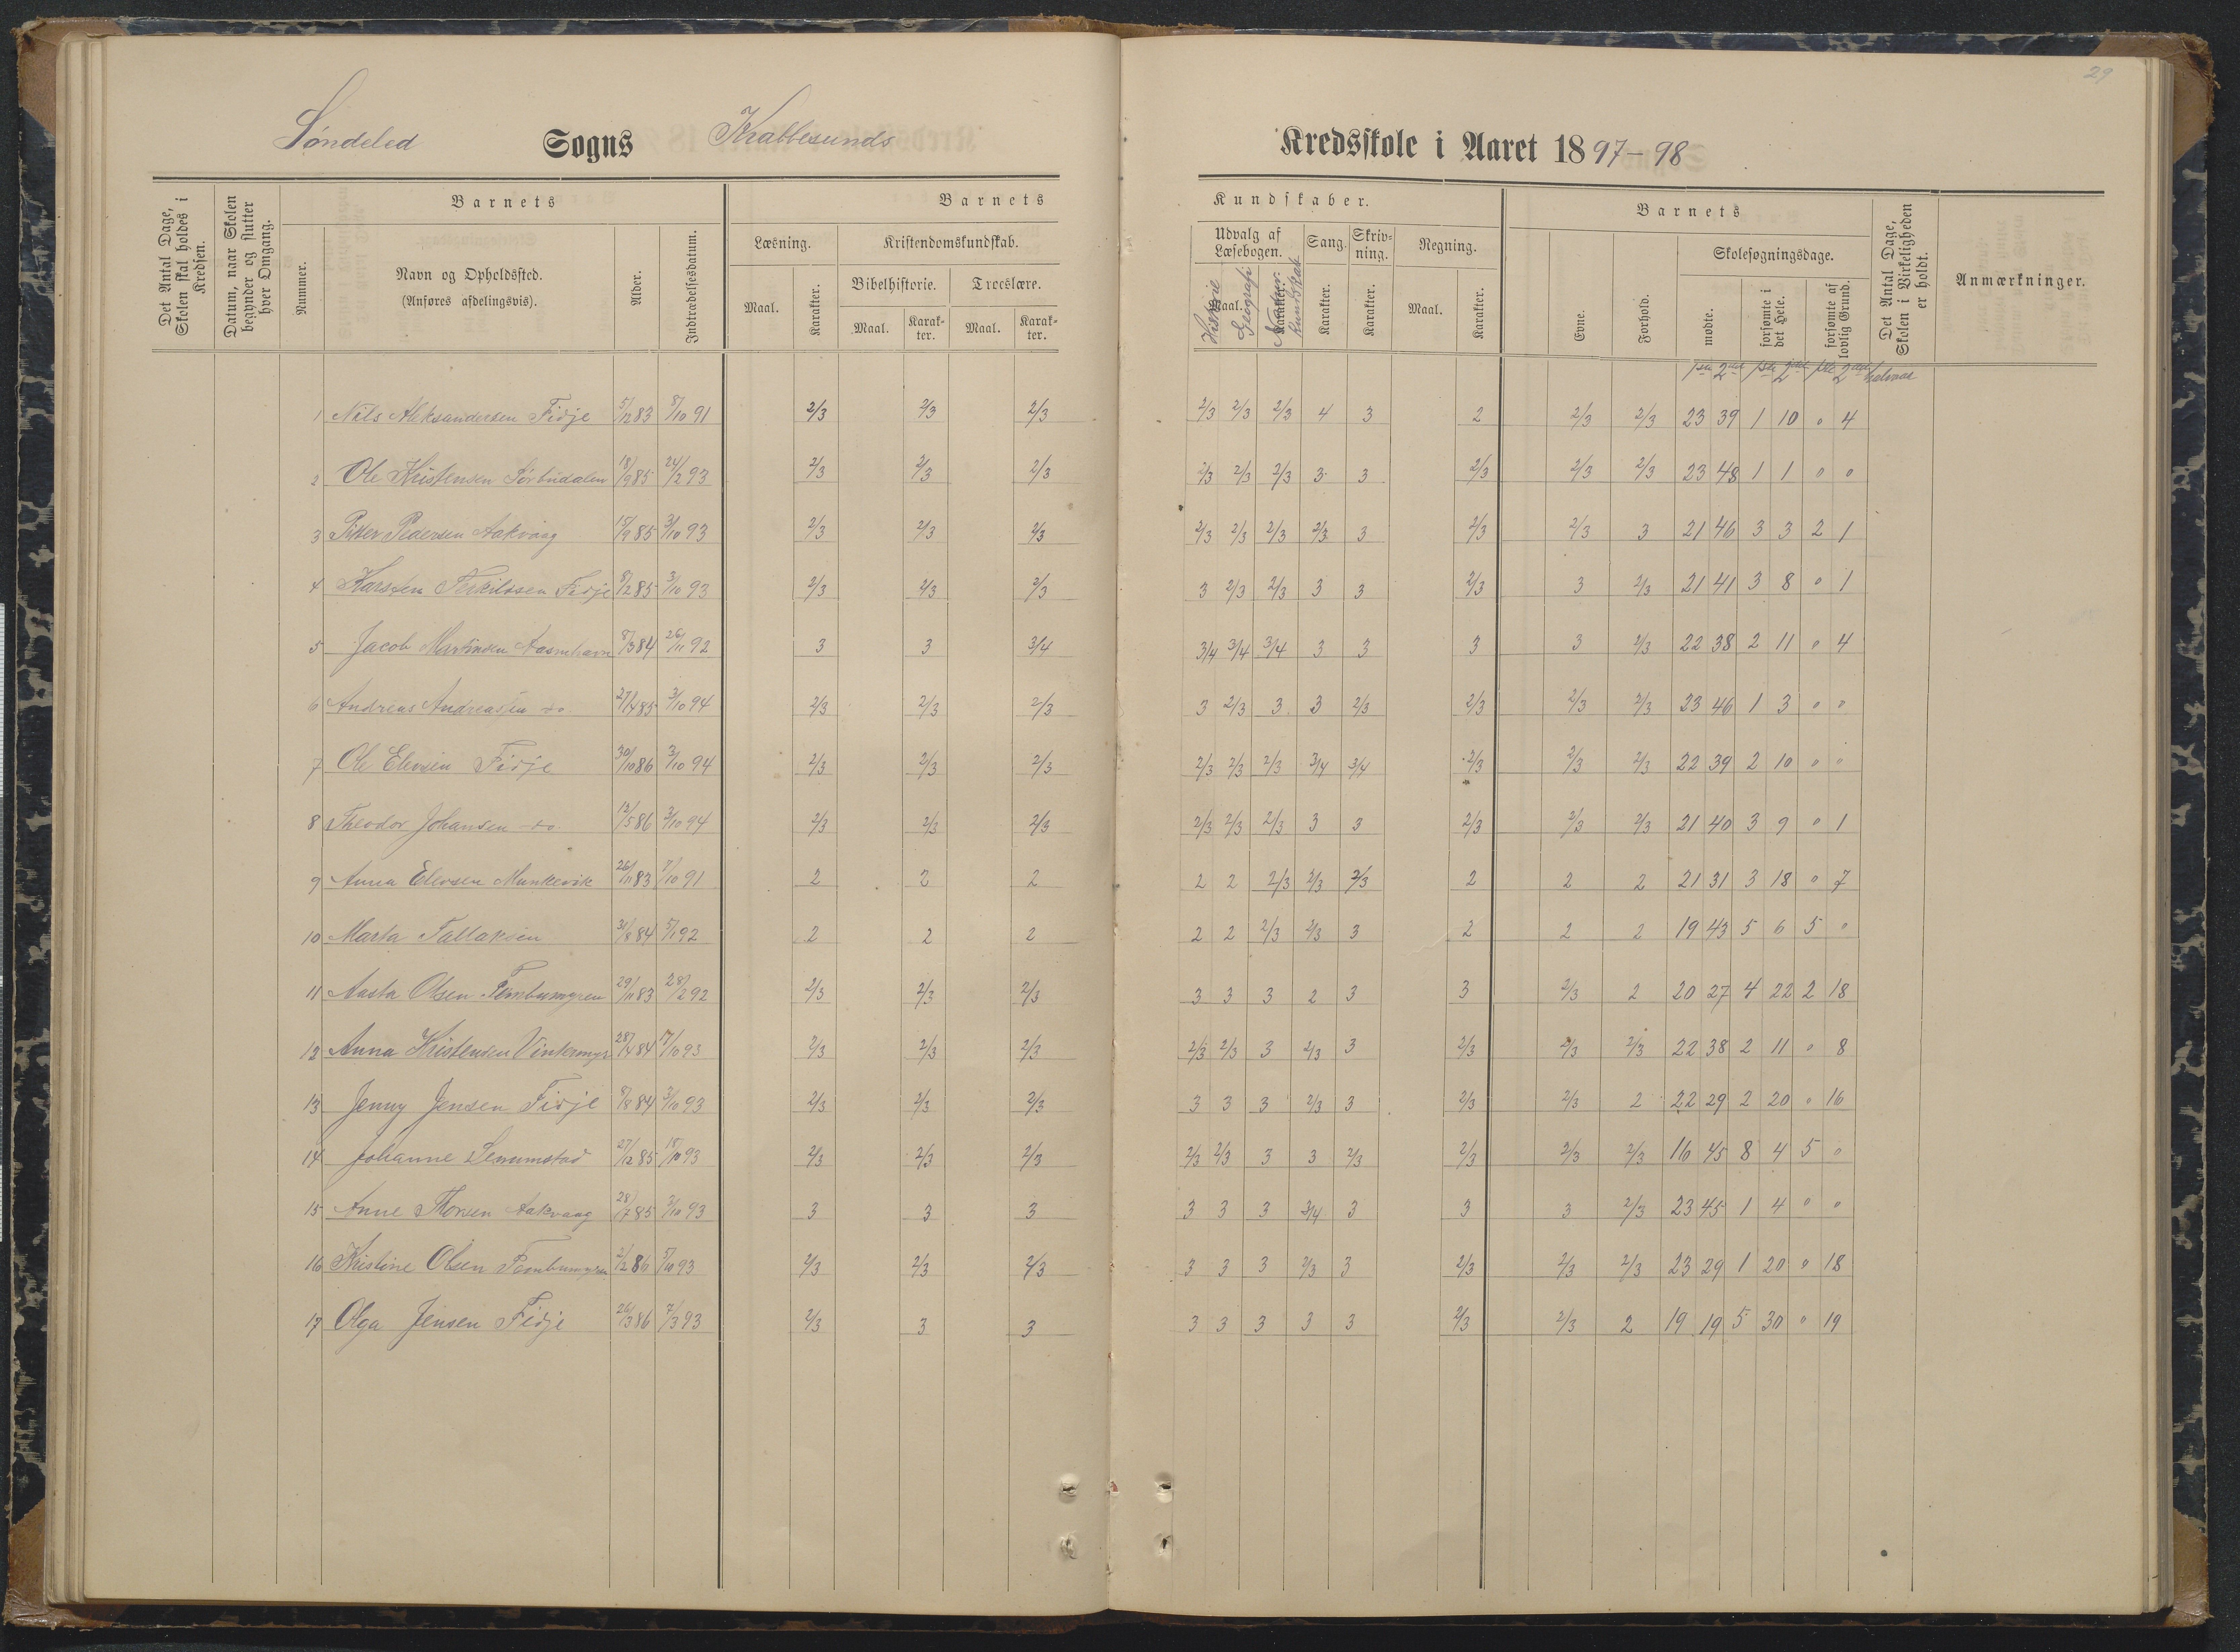 29
Söndeled Sogns Krabbesunds Kredsskole i Aaret 1897-98
Det Antal Dage, Skolen skal holdes i Kredsen.
Datum, naar Skolen begynder og slutter hver Omgang.
Barnets
Nummer.
Navn og Opholdssted.
(Anføres afdelingsvis).
Alder.
Indtrædelsesdatum.
Barnets Kundskaber.
Læsning.
Maal. Karakter.
Kristendomskundskab.
Bibelhistorie. Troeslære.
Maal. Karakter. Maal. Karakter.
Udvalg af Læsebogen.
Maal. Karakter.
Historie Geografi Naturkundskab
Sang.
Karakter.
Skrivning.
Karakter.
Regning.
Maal. Karakter.
Barnets
Evne. Forhold.
Skolesøgningsdage.
mødte. forsømte i det Hele. forsømte af lovlig Grund.
Det Antal Dage, Skolen i Virkeligheden er holdt.
Anmærkninger.
1ste 2det 1ste 2det 1ste 2det halvaar
1 Nils Aleksandersen Fidje 5/12 83 8/10 91 2/3 2/3 2/3 2/3 2/3 2/3 4 3 2 2/3 2/3 23 39 1 10 " 4
2 Ole Kristensen Sörbudalen 18/9 85 24/2 93 2/3 2/3 2/3 2/3 2/3 2/3 3 3 2/3 2/3 2/3 23 48 1 1 " "
3 Peder Pedersen Aakvaag 15/9 85 3/10 93 2/3 2/3 2/3 2/3 2/3 2/3 2/3 3 2/3 2/3 3 21 46 3 3 2 1
4 Karsten Terkilssen Fidje 8/2 85 3/10 93 2/3 2/3 2/3 3 2/3 2/3 3 3 2/3 3 2/3 21 41 3 8 " 1
5 Jacob Martinsen Aasmhavn 8/3 84 26/11 92 3 3 3/4 3/4 3/4 3/4 3 3 3 3 2/3 22 38 2 11 " 4
6 Andreas Andreassen do. 27/4 85 3/10 94 2/3 2/3 2/3 3 2/3 3 3 2/3 2/3 2/3 2/3 23 46 1 3 " "
7 Ole Elevsen Fidje 30/10 86 3/10 94 2/3 2/3 2/3 2/3 2/3 2/3 3/4 3/4 2/3 2/3 2/3 22 39 2 10 " "
8 Theodor Johansen do 12/5 86 3/10 94 2/3 2/3 2/3 2/3 2/3 2/3 3 3 2/3 2/3 2/3 21 40 3 9 " 1
9 Anna Elevsen Munkevik 26/11 83 7/10 91 2 2 2 2 2 2/3 2/3 2/3 2 2 2 21 31 3 18 " 7
10 Marta Tallaksen 31/8 84 5/1 92 2 2 2 2 2 2/3 2/3 3 2 2 2 19 43 5 6 5 "
11 Aasta Olsen Fembumyren 29/11 83 28/2 92 2/3 2/3 2/3 3 3 3 2 3 3 2/3 2 20 27 4 22 2 18
12 Anna Kristensen Vintermyr 28/4 84 17/10 93 2/3 2/3 2/3 2/3 2/3 3 2/3 3 2/3 2/3 2/3 22 38 2 11 " 8
13 Jenny Jensen Fidje 8/8 84 3/10 93 2/3 2/3 2/3 3 3 3 2/3 3 2/3 2/3 2 22 29 2 20 " 16
14 Johanne Lemmstad 27/12 85 18/10 93 2/3 2/3 2/3 2/3 2/3 3 3 2/3 2/3 2/3 2/3 16 45 8 4 5 "
15 Anne Thorsen Aakvaag 28/7 85 3/10 93 3 3 3 3 3 3 3/4 3 3 3 2/3 23 45 1 4 " "
16 Kristine Olsen Fembumyren 2/2 86 5/10 93 2/3 2/3 2/3 3 3 3 2/3 3 2/3 2/3 2/3 23 29 1 20 " 18
17 Olga Jensen Fidje 26/3 86 7/3 93 2/3 3 3 3 3 3 3 3 2/3 2/3 2 19 19 5 30 " 19